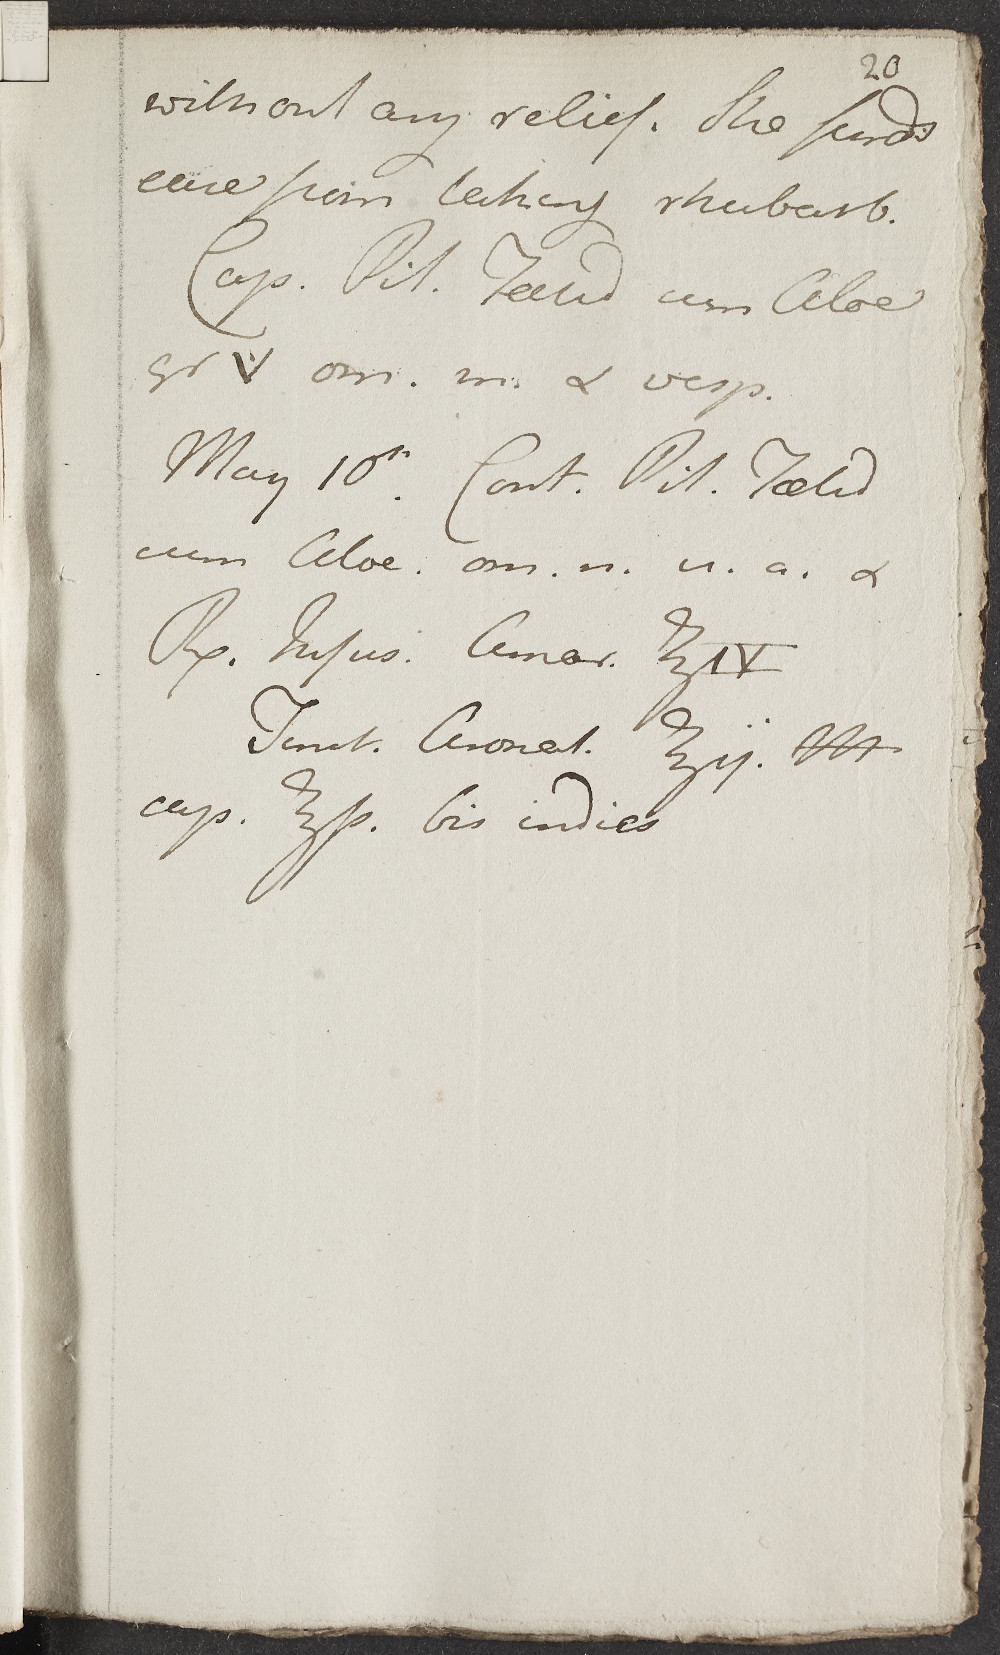 20
without any relief. She finds
ease from taking rhubarb.
Cap. Pil. Fœtid cum Aloe
gr V om. m. & vesp.
May 10th. Cont. Pil. Fœtid
cum Aloe. om. n. u. a. &
Rx. Infus. Amar. ℥IV
Tinct. Aromat. ℥ij. M
cap. ℥ß. bis indies